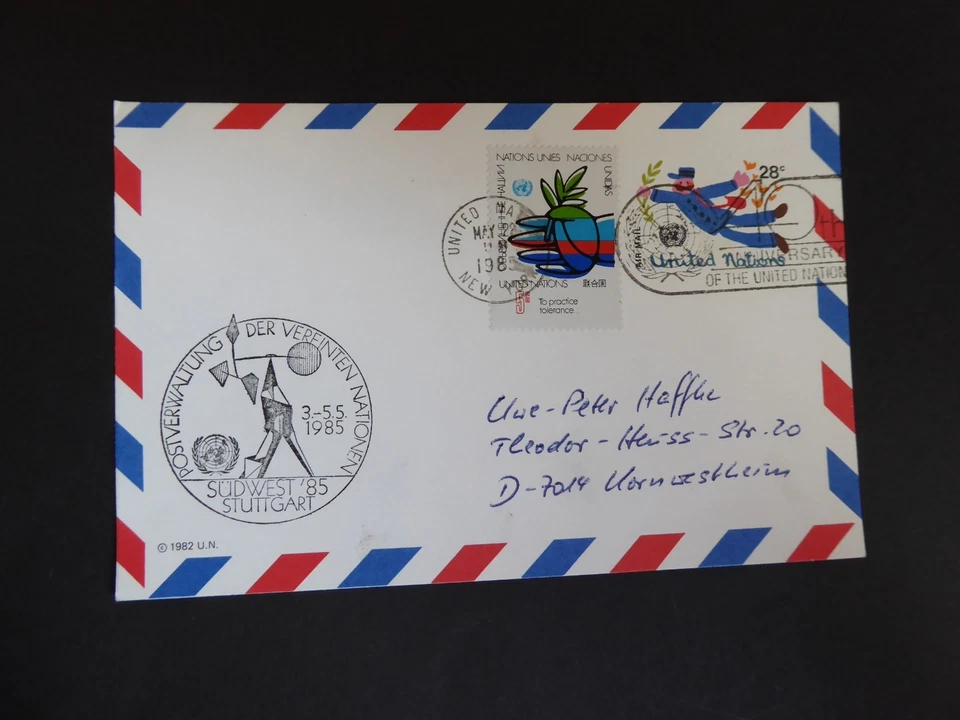 NATIONS UNIES NACIONES
UNIDAS
UNITED NATIONS 联合国
To practice
tolerance...
28c
AIR MAIL
United Nations
UNITED NAT
MAY
1985
NEW
VERSARY
OF THE UNITED NATION
POSTVERWALTUNG DER VEREINTEN NATIONEN
3.-5.5.
1985
SÜDWEST '85
STUTTGART
Uwe-Peter Haffke
Theodor-Heuss-Str. 20
D-7014 Kornwestheim
© 1982 U.N.